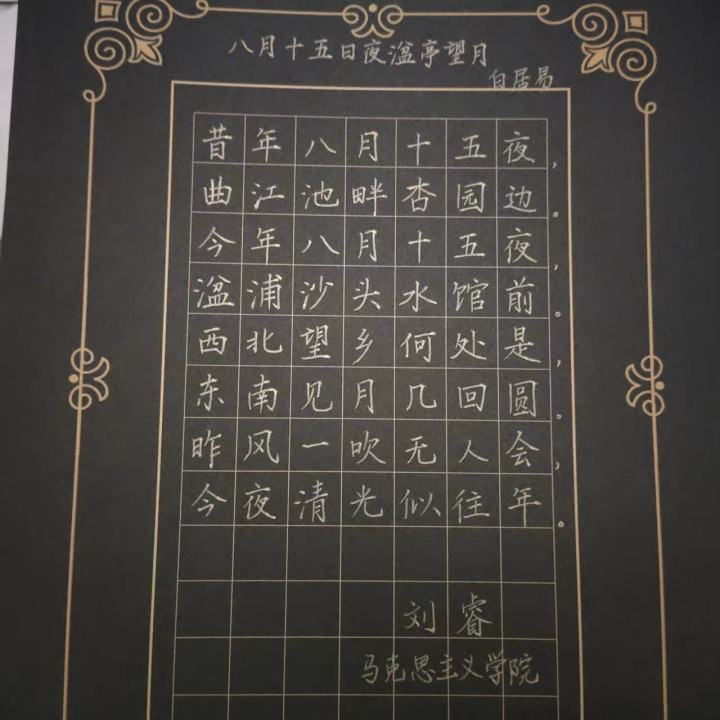 八月十五日夜湓亭望月
白居易
昔年八月十五夜，
曲江池畔杏园边。
今年八月十五夜，
湓浦沙头水馆前。
西北望乡何处是，
东南见月几回圆。
昨风一吹无人会，
今夜清光似往年。
刘睿
马克思主义学院